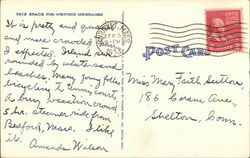 THIS SPACE FOR WRITING MESSAGES
It is pretty and quiet
and more crowded than
I expected. Island sur-
rounded by white sand
beaches. Many young folks
bicycling &amp; tennis courts.
A busy vacation crowd
5 hr. steamer ride from
Bedford, Mass. I like
it.
Amanda Wilson
POST CARD
Miss Mary Faith Sutton,
186 Coram Ave.,
Shelton, Conn.